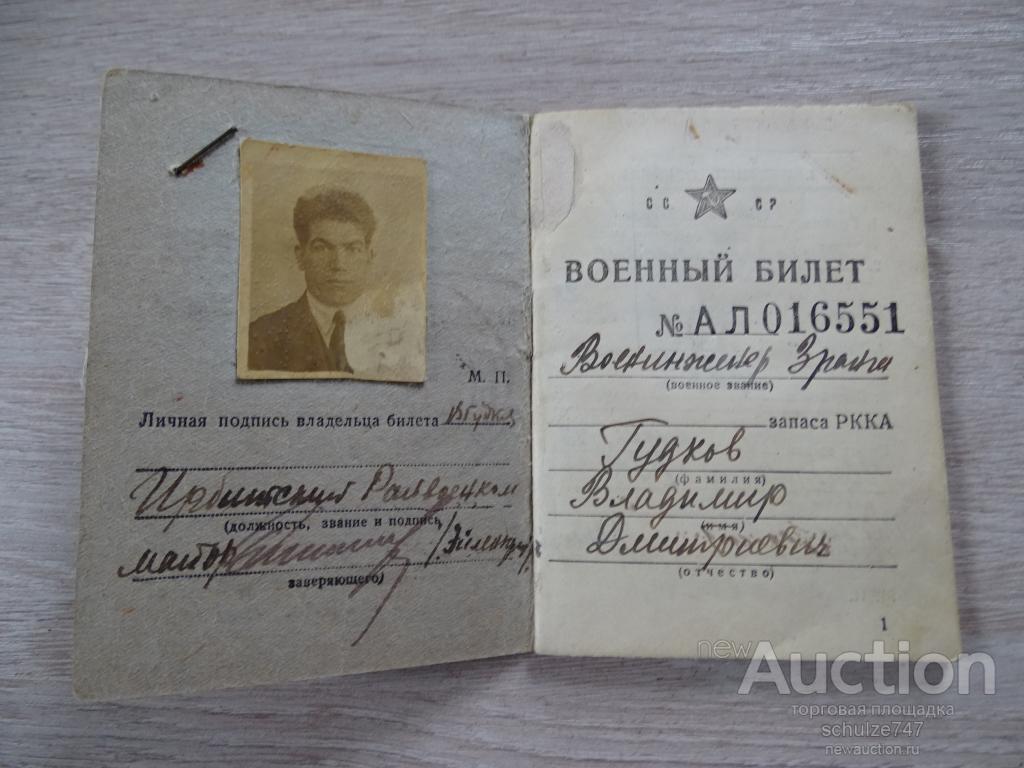 М. П.
Личная подпись владельца билета
(должность, звание и подпись
майор
заверяющего)
СС СР
ВОЕННЫЙ БИЛЕТ
№ АЛ 016551
Военинженер 3 ранга
(военное звание)
запаса РККА
Гудков
(фамилия)
Владимир
(имя)
Дмитриевич
(отчество)
1
newAuction
торговая площадка
schulze747
newauction.ru